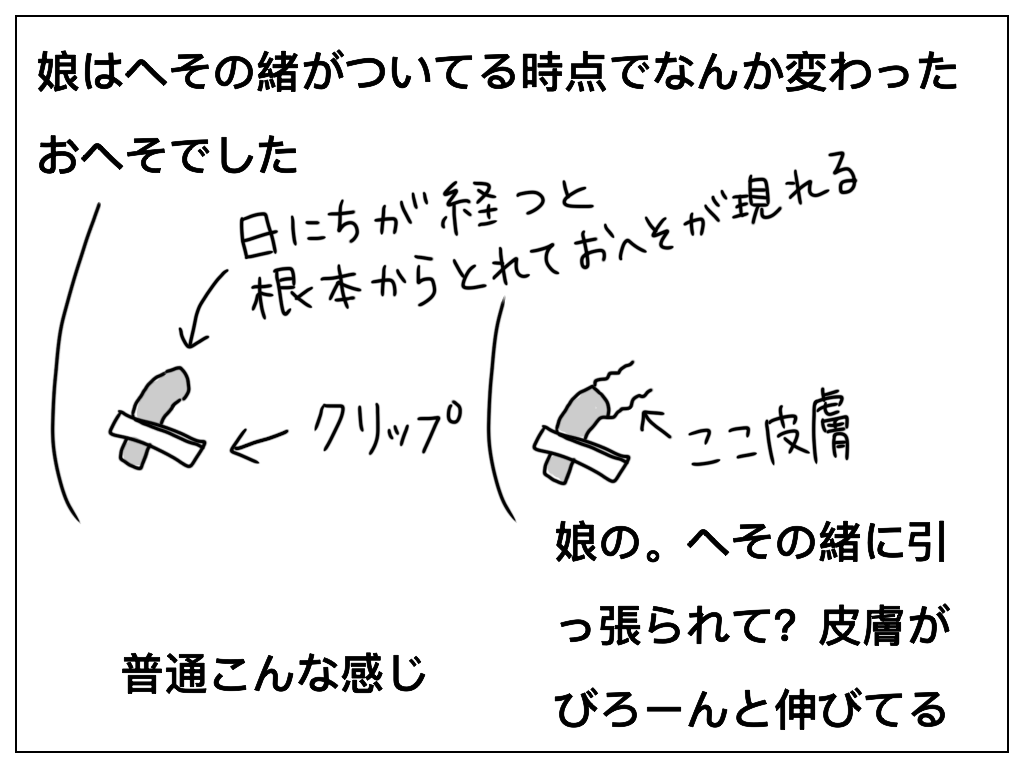 娘はへその緒がついてる時点でなんか変わった
おへそでした
日にちが経つと
根本からとれておへそが現れる
クリップ
ここ皮膚
普通こんな感じ
娘の。へその緒に引
っ張られて？皮膚が
びろーんと伸びてる